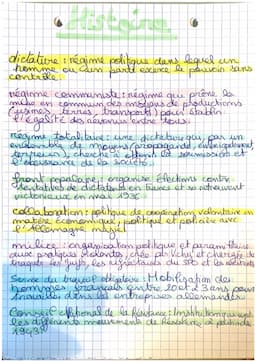 Histoire
dictature : régime politique dans lequel un
homme ou un parti exerce le pouvoir sans
contrôle.
régime communiste : régime qui prône la
mise en commun des moyens de productions
(usines, terres, transports) pour établir
l'égalité des revenus entre tous.
régime totalitaire : une dictature qui, par un
ensemble de moyens (propagande, embrigadement,
terreur), cherche à obtenir la soumission et
l'obéissance de la société.
front populaire : organise élections contre
tentatives de dictature en France et se retrouvent
victorieux en mai 1936
collaboration : politique de coopération volontaire en
matière économique, politique et policière avec
l'Allemagne nazie
milice : organisation politique et paramilitaire
aux pratiques violentes, créée par Vichy et chargée de
traquer les juifs, les réfractaires du STO et les résistants
Service du travail obligatoire : Mobilisation des
hommes français entre 20 et 23 ans pour
travailler dans les entreprises allemandes
Conseil National de la Résistance : Institution qui unit
les différents mouvements de Résistance à partir de
1943